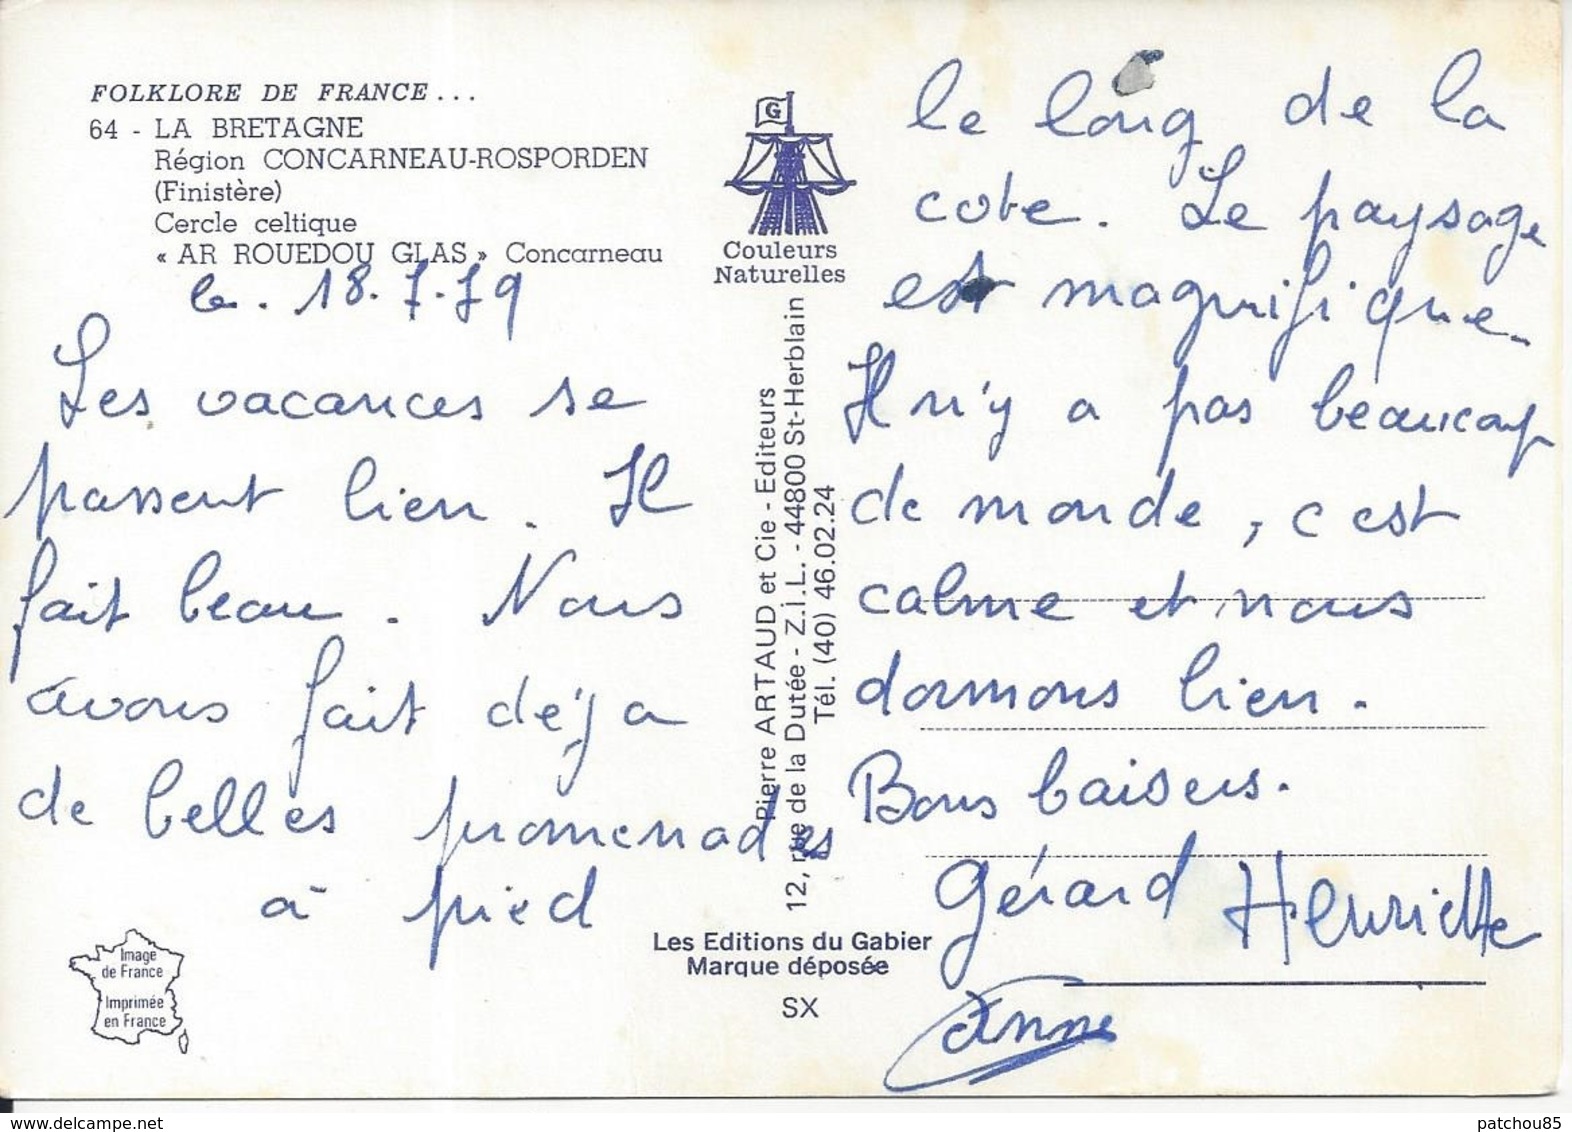 FOLKLORE DE FRANCE...
64 - LA BRETAGNE
Région CONCARNEAU-ROSPORDEN
(Finistère)
Cercle celtique
« AR ROUEDOU GLAS » Concarneau
le. 18.7.79
Les vacances se
passent bien. Il
fait beau. Nous
avons fait déjà
de belles promenades
à pied
Image
de France
Imprimée
en France
G
Couleurs
Naturelles
Pierre ARTAUD et Cie - Editeurs
12, rue de la Dutée - Z.I.L. - 44800 St-Herblain
Tél. (40) 46.02.24
Les Editions du Gabier
Marque déposée
SX
le long de la
cote. Le paysage
est magnifique.
Il n'y a pas beaucoup
de monde, c est
calme et nous
dormons bien.
Bons baisers.
Gérard Henriette
Anne
patchou85